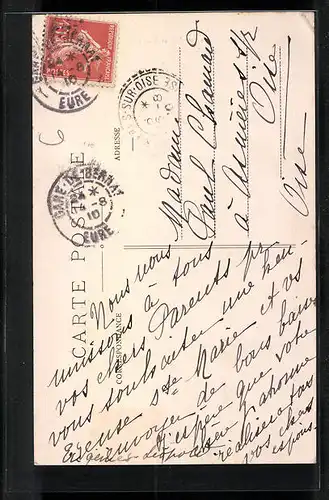 CARTE POSTALE
CORRESPONDANCE
ADRESSE
EURE
S-SUR-OISE
8
10
EURE
Madame
Paul
à Asnières s/r
Oise
Oise
Nous nous
unissons à tous
vos chers Parents pr
vous souhaiter une heu-
reuse Ste Marie et vs
envoyer de bons baisers
J'espère que votre
réalisera tous
vos chers
espoirs.